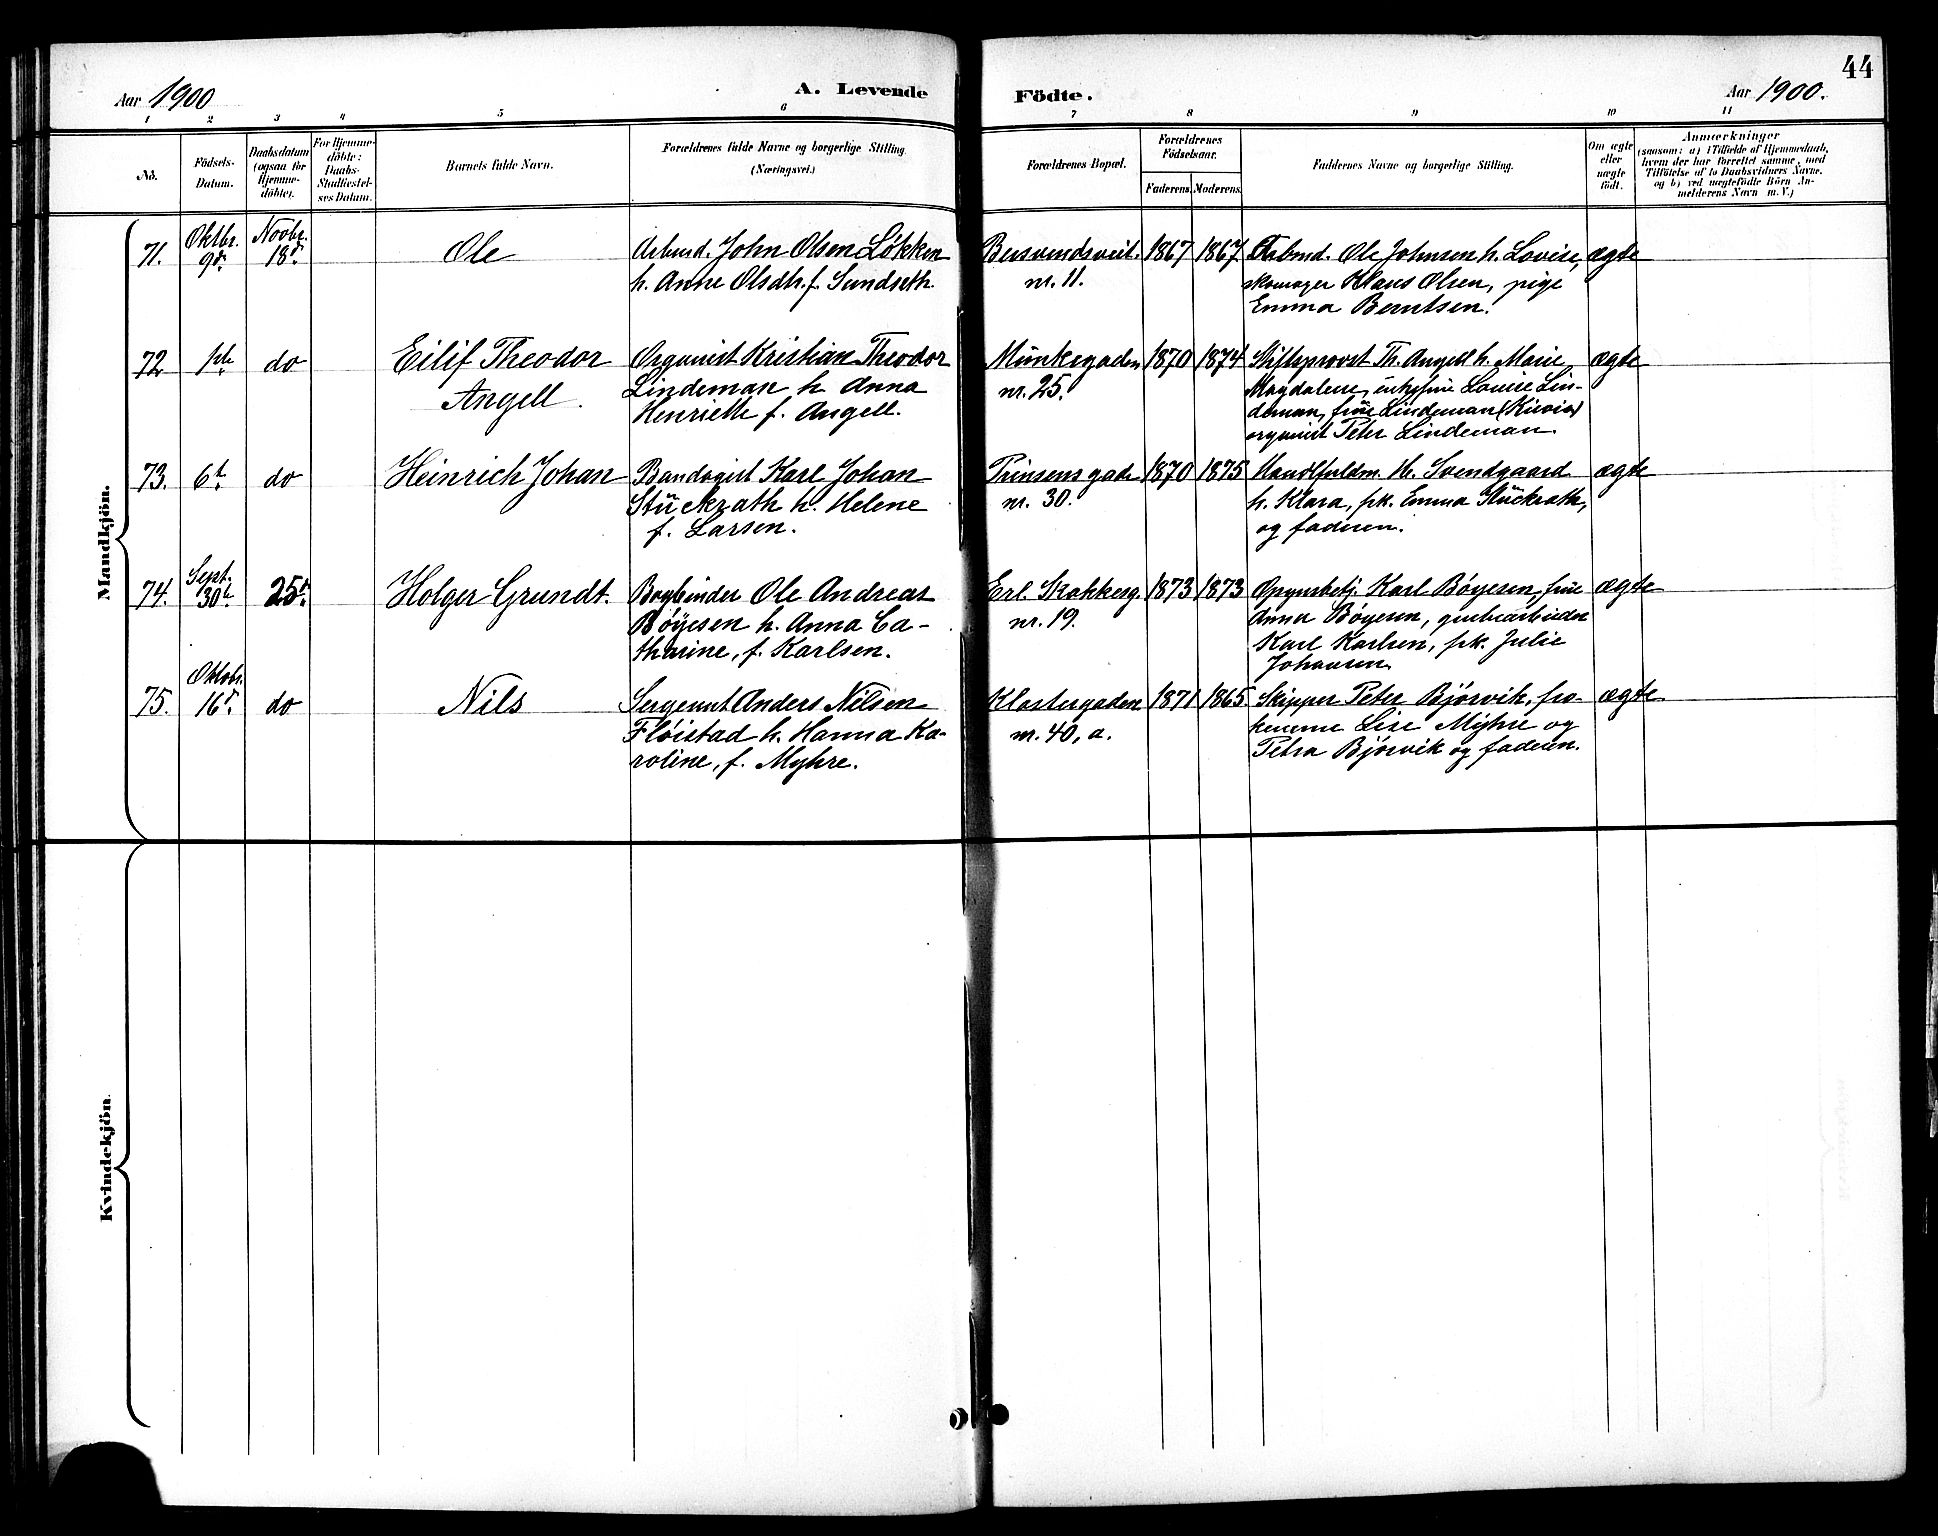 44
Aar 1900
A. Levende
Födte.
Aar 1900.
1 2 3 4 5 6 7 8 9 10 11
No.
Födsels-
Datum.
Daabsdatum
(ogsaa for
Hjemme-
döbte).
For Hjemme-
döbte:
Daabs-
Stadfæstel-
ses Datum.
Barnets fulde Navn.
Forældrenes fulde Navne og borgerlige Stilling.
(Næringsvei.)
Forældrenes Bopæl.
Forældrenes
Födselsaar.
Faderens. Moderens.
Faddernes Navne og borgerlige Stilling.
Om ægte
eller
uægte
födt.
Anmærkninger
(saasom: a) i Tilfælde af Hjemmedaab,
hvem der har forrettet samme, med
Tilföielse af to Daabsvidners Navne.
og b) ved uægtefödte Börn An-
melderens Navn m. V.)
Mandkjön.
71.
Oktbr.
9de
Novbr.
18d.
Ole
Arbmd. John Olsen Løkken
h. Anne Olsdtr. f. Sundseth.
Bersvendsveit.
nr. 11.
1867 1867
Arbmd. Ole Johnsen h. Lovise,
skomager Klaus Olsen, pige
Emma Berntsen.
ægte
72
1ste
do
Eilif Theodor
Angell.
Organist Kristian Theodor
Lindeman h Anna
Henriette f. Angell.
Munkegaden
nr. 25.
1870 1874
Stiftsprovst Th. Angell h. Marie
Magdalene, enkefrue Louise Lin-
deman, frue Lindeman
organist Peter Lindeman.
ægte
73.
6t.
do
Heinrich Johan
Bandagist Karl Johan
Stückrath h. Helene
f. Larsen.
Prinsens gade
nr. 30.
1870 1875
Handlfuldm. H. Svendgaard
h. Klara, pk. Emma Stückrath,
og faderen.
ægte
74.
Sept.
30te
25t.
Holger Grundt.
Bogbinder Ole Andreas
Bøyesen h. Anna Ca-
tharine, f. Karlsen.
Erl. Skakkesg.
nr. 19.
1873 1873
Opsynsbetj. Karl Bøyesen, frue
Anna Bøyesen, grubearbeider
Karl Karlsen, pk. Julie
Johansen
ægte
75.
Oktobr.
16d.
do
Nils
Sergeant Anders Nilsen
Fløistad h. Hanna Ka-
roline, f. Myhre.
Klostergaden
nr. 40, a.
1871 1865.
Skipper Peter Bjørvik, frø-
kenerne Lise Myhre og
Petra Bjørvik og faderen.
ægte
Kvindekjön.